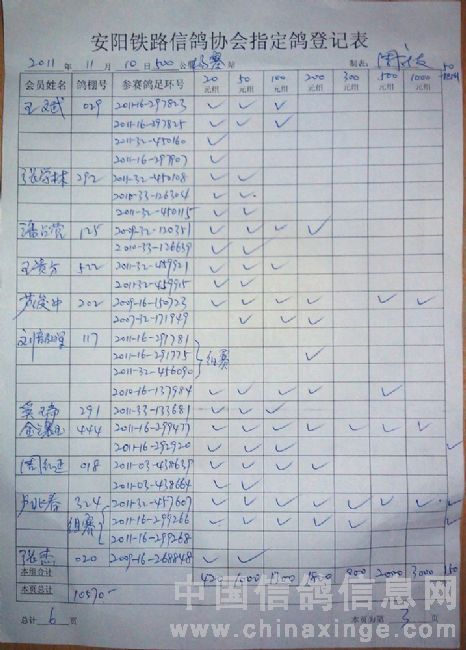 安阳铁路信鸽协会指定鸽登记表
2011 年 11 月 10 日 500 公 赛 站 制表:
会员姓名 鸽棚号 参赛鸽足环号 20元组 50元组 100元组 200元组 300元组 500元组 1000元组 50
王文斌 029 2011-16-297823 ✓ ✓ ✓
2011-16-297825 ✓ ✓ ✓
2011-32-450160 ✓
2011-16-297807 ✓
张学林 292 2011-32-450108 ✓ ✓
2010-33-126304 ✓ ✓
2011-32-450115 ✓ ✓
125 2009-32-120351 ✓ ✓ ✓ ✓
2010-33-126639 ✓ ✓
522 2011-32-459921 ✓ ✓ ✓
2011-32-459915 ✓ ✓
202 2009-16-150723 ✓ ✓ ✓ ✓ ✓
2007-12-171949 ✓ ✓ ✓
117 2011-16-291781
2011-16-291775 组赛 ✓
2011-32-456090
2010-16-137984 ✓ ✓ ✓ ✓
291 2011-33-133681 ✓ ✓ ✓
444 2011-16-299479 ✓ ✓ ✓ ✓ ✓ ✓ ✓
2011-16-292920 ✓ ✓ ✓ ✓ ✓
018 2011-03-438639 ✓ ✓ ✓ ✓
2011-03-438664 ✓ ✓
卢北春 324 2011-32-457607 ✓ ✓ ✓ ✓ ✓ ✓ ✓ ✓
组赛 2011-16-299266 ✓ ✓ ✓ ✓ ✓
2011-16-299268
张杰 020 2009-16-268848 ✓ ✓
本组合计 420 1300 1800 2000 3000 150
本页总计 10570-
总计 6 页 本页为第 3 页
中国信鸽信息网
www.chinaxinge.com